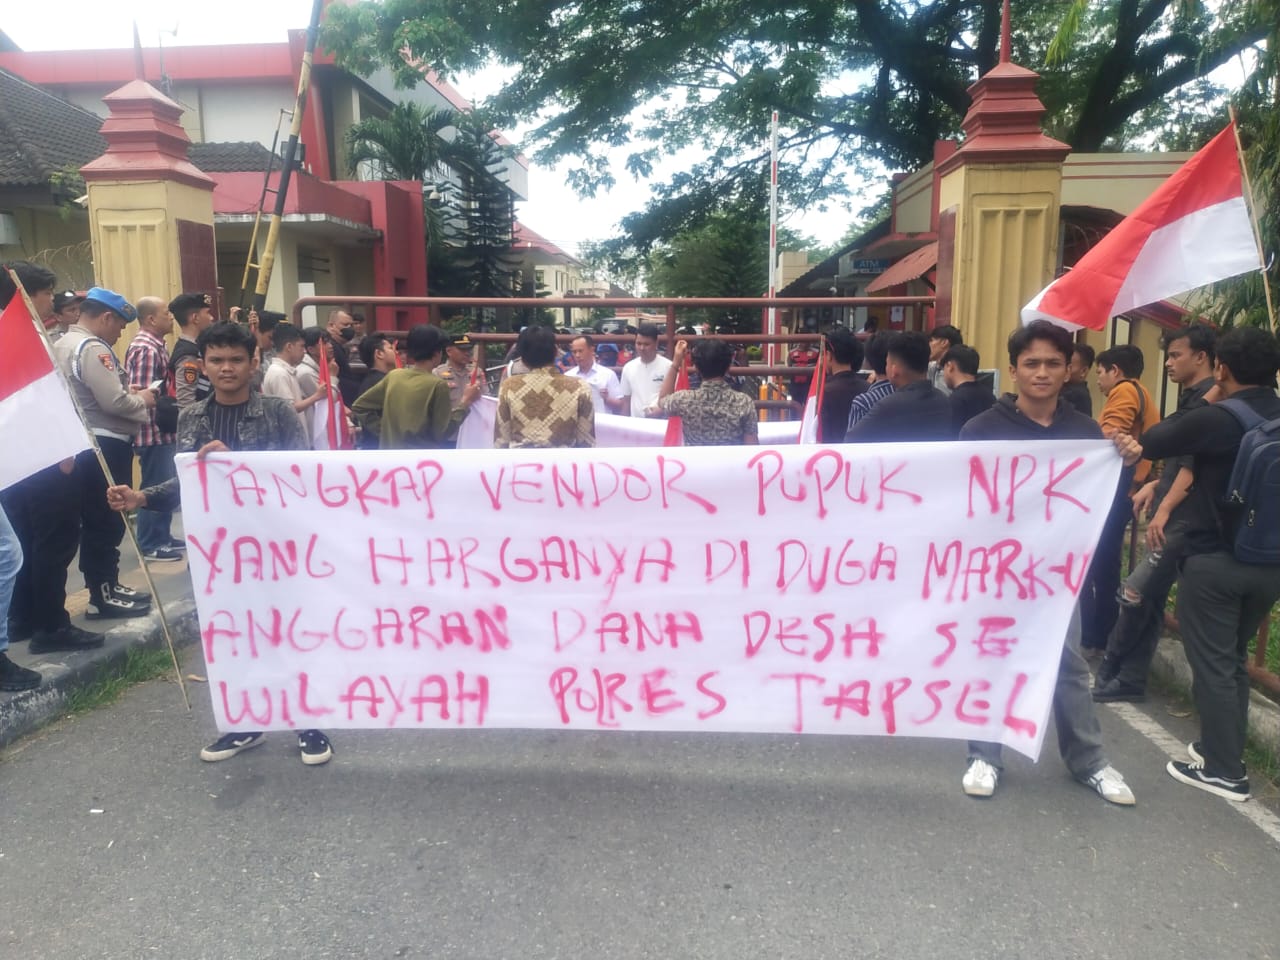 ATM
TANGKAP VENDOR PUPUK NPK
YANG HARGANYA DI DUGA MARK-U
ANGGARAN DANA DESA SE
WILAYAH POLRES TAPSEL